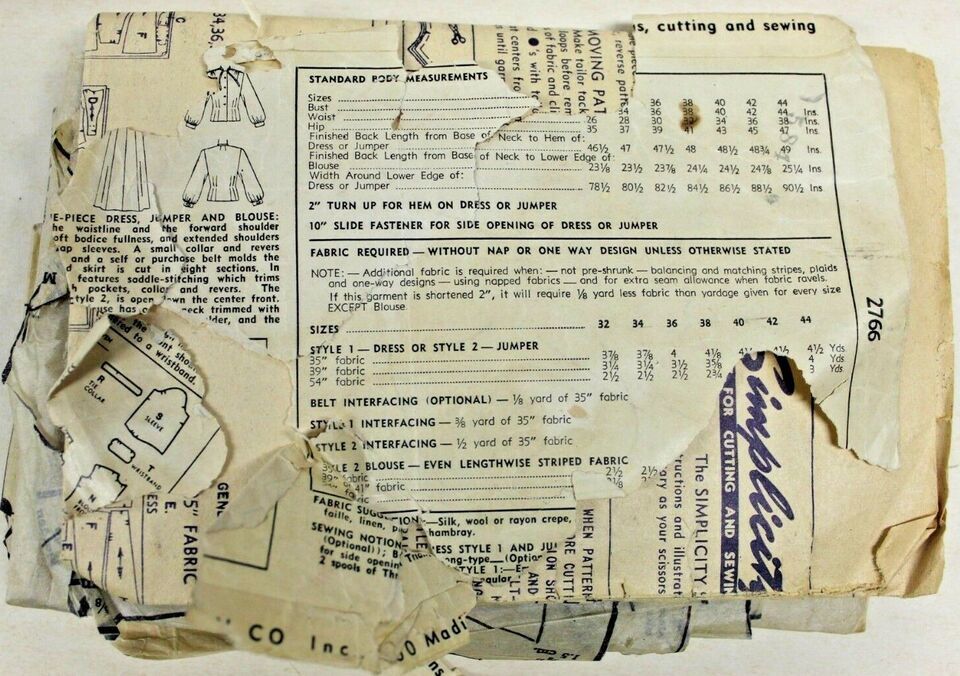 34,36,
s, cutting and sewing
MOVING PAT
Make tailor tack
loops before rem
of fabric and cli
s with
t centers fro
until gar
reverse patt
D
STANDARD BODY MEASUREMENTS
Sizes 36 38 40 42 44
Bust 34 36 38 40 42 44 Ins.
Waist 26 28 30 32 34 36 38 Ins.
Hip 35 37 39 41 43 45 47 Ins.
Finished Back Length from Base of Neck to Hem of:
Dress or Jumper 46½ 47 47½ 48 48½ 48¾ 49 Ins.
Finished Back Length from Base of Neck to Lower Edge of:
Blouse 23⅛ 23½ 23⅞ 24¼ 24½ 24⅞ 25¼ Ins
Width Around Lower Edge of:
Dress or Jumper 78½ 80½ 82½ 84½ 86½ 88½ 90½ Ins
2" TURN UP FOR HEM ON DRESS OR JUMPER
10" SLIDE FASTENER FOR SIDE OPENING OF DRESS OR JUMPER
FABRIC REQUIRED — WITHOUT NAP OR ONE WAY DESIGN UNLESS OTHERWISE STATED
NOTE: — Additional fabric is required when: — not pre-shrunk — balancing and matching stripes, plaids
and one-way designs — using napped fabrics — and for extra seam allowance when fabric ravels.
If this garment is shortened 2", it will require ⅛ yard less fabric than yardage given for every size
EXCEPT Blouse.
SIZES 32 34 36 38 40 42 44
STYLE 1 — DRESS OR STYLE 2 — JUMPER
35" fabric 3⅞ 3⅞ 4 4⅛ 4½ Yds
39" fabric 3¼ 3¼ 3½ 3⅝ 4 Yds
54" fabric 2½ 2½ 2½ 2¾ 3 Yds.
BELT INTERFACING (OPTIONAL) — ⅛ yard of 35" fabric
STYLE 1 INTERFACING — ⅜ yard of 35" fabric
STYLE 2 INTERFACING — ½ yard of 35" fabric
STYLE 2 BLOUSE — EVEN LENGTHWISE STRIPED FABRIC
39" fabric 2½ 2½
or 41" fabric
FABRIC SUGGESTION —Silk, wool or rayon crepe,
faille, linen, hambray.
SEWING NOTION
(Optional)); B
for side openin
2 spools of Thr
ESS STYLE 1 AND JU
long-type—(Option
TYLE 1:—
E-PIECE DRESS, JUMPER AND BLOUSE:
he waistline and the forward shoulder
oft bodice fullness, and extended shoulders
ap sleeves. A small collar and revers
and a self or purchase belt molds the
d skirt is cut in eight sections. In
features saddle-stitching which trims
h pockets, collar and revers. The
tyle 2, is open down the center front.
use has neck trimmed with
lder, and the
ont shou
ered to a wristband.
R
TIE
COLLAR
S
SLEEVE
T
WRISTBAND
N
F
E
GEN
5" FABRIC
ESS
E.
WHEN PATTERN
ORE CUTTI
ON SHO
AND
Simplicity
FOR CUTTING AND SEWIN
The SIMPLICITY
tructions and illustrat
ary as your scissors
2766
CO Inc, 00 Madi
ns
1.5 cm.